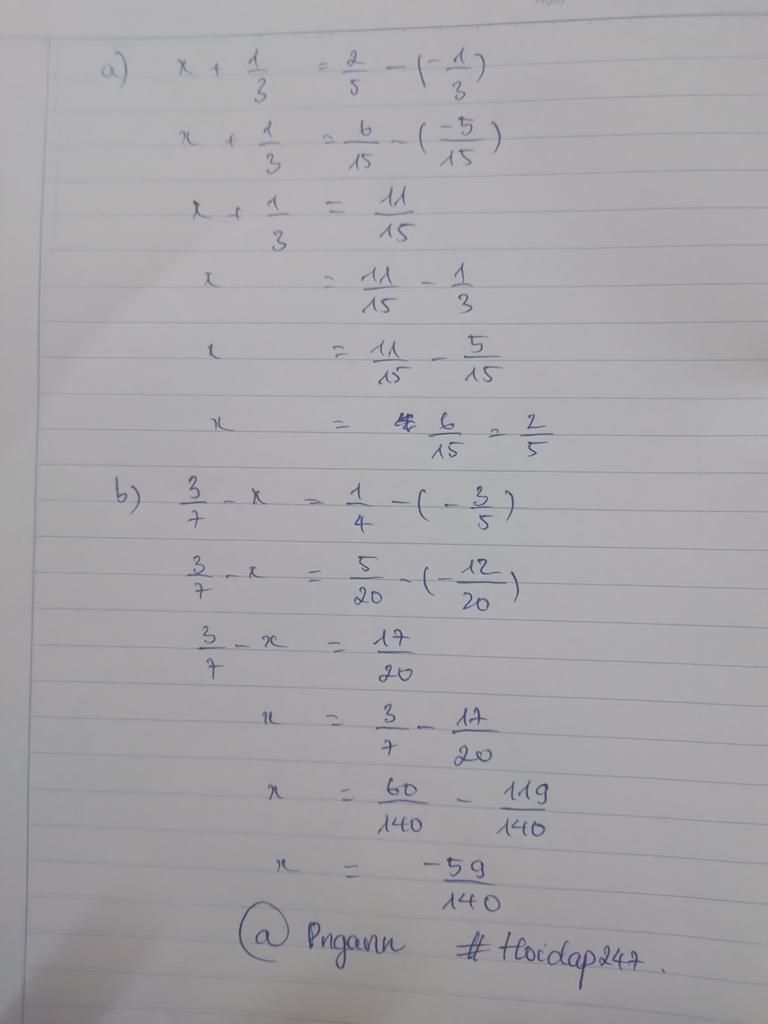 a) x + 1/3 = 2/5 - (-1/3)
x + 1/3 = 6/15 - (-5/15)
x + 1/3 = 11/15
x = 11/15 - 1/3
x = 11/15 - 5/15
x = 6/15 = 2/5
b) 3/7 - x = 1/4 - (-3/5)
3/7 - x = 5/20 - (-12/20)
3/7 - x = 17/20
x = 3/7 - 17/20
x = 60/140 - 119/140
x = -59/140
@ Pngann # Hoidap247.